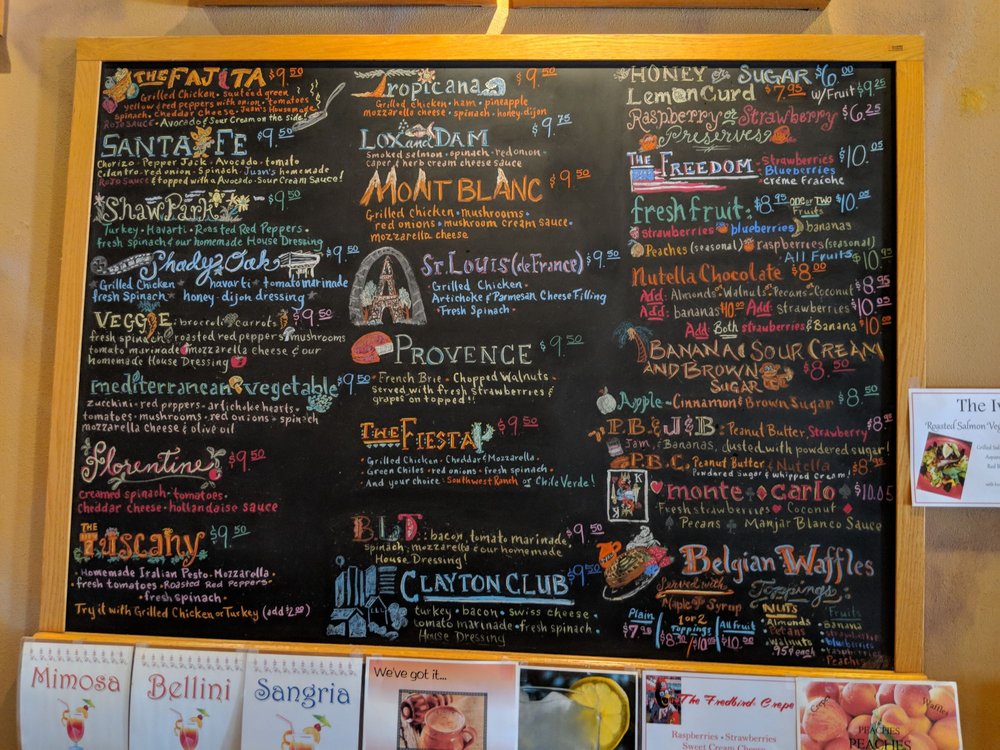 THE FAJITA $9.50
Grilled Chicken • sauteed green
yellow & red peppers with onion • tomatoes
spinach • cheddar cheese • Juan's Homemade
ROJO SAUCE • Avocado & Sour Cream on the side!
SANTA FE $9.50
Chorizo • Pepper Jack • Avocado • tomato
Cilantro • red onion • Spinach • Juan's homemade
ROJO SAUCE & topped with Avocado • Sour Cream Sauce!
Shaw Park $9.50
Turkey • Havarti • Roasted Red Peppers •
fresh spinach & our homemade House Dressing
Shady Oak $9.50
Grilled Chicken havarti tomato marinade
fresh Spinach honey • dijon dressing
VEGGIE: broccoli carrots $9.50
fresh spinach roasted red peppers mushrooms
tomato marinade mozzarella cheese & our
homemade House Dressing
mediterranean vegetable $9.50
zucchini • red peppers • artichoke hearts •
tomatoes • mushrooms • red onions • spinach
mozzarella cheese & olive oil
Florentine $9.50
creamed spinach • tomatoes •
cheddar cheese • hollandaise sauce
THE Tuscany $9.50
• Homemade Italian Pesto • Mozzarella •
• fresh tomatoes • Roasted Red Peppers •
• fresh spinach •
Try it with Grilled Chicken or Turkey (add $2.00)
Tropicana $9.50
Grilled chicken • ham • pineapple
mozzarella cheese • spinach • honey • dijon
LOX and DAM $9.75
Smoked salmon • spinach • red onion •
caper & herb cream cheese sauce
MONT BLANC $9.50
Grilled chicken • mushrooms •
red onions • mushroom cream sauce •
mozzarella cheese
ST. LOUIS (de France) $9.50
• Grilled Chicken •
Artichoke & Parmesan Cheese Filling
• Fresh Spinach •
PROVENCE $9.50
• French Brie • Chopped Walnuts •
Served with fresh strawberries &
grapes on topped!!
THE FIESTA $9.50
• Grilled Chicken • Cheddar & Mozzarella •
Green Chiles • red onions • fresh spinach •
And your choice: Southwest Ranch or Chile Verde!
B.L.T.: bacon, tomato marinade $9.50
spinach, mozzarella & our homemade
House Dressing!
CLAYTON CLUB $9.50
turkey • bacon • swiss cheese
tomato marinade • fresh spinach •
House Dressing
HONEY or SUGAR $6.00
Lemon Curd $7.95 w/Fruit $9.25
Raspberry or Strawberry $6.25
Preserves
THE FREEDOM • strawberries $10.05
• Blueberries
créme fraiche
fresh fruit: $8.95 one or two Fruits $10.05
strawberries blueberries bananas
Peaches (seasonal) raspberries (seasonal)
All Fruits $10.95
Nutella Chocolate $8.00
Add: Almonds • Walnuts • Pecans • Coconut $8.95
Add: bananas $10.00 Add: strawberries $10.05
Add: Both strawberries & Banana $10.00
BANANA & SOUR CREAM
AND BROWN
SUGAR $8.50
Apple • Cinnamon & Brown Sugar $8.50
P.B. & J & B: Peanut Butter, Strawberry $8.95
Jam, & Bananas, dusted with powdered sugar!
P.B.C. Peanut Butter & Nutella $8.95
Powdered Sugar & whipped Cream!
monte carlo $10.05
Fresh strawberries Coconut
Pecans Manjar Blanco Sauce
Belgian Waffles
Served with
Maple Syrup
Toppings
Plain $7.95
1 or 2 Toppings
All fruit $10.50
NUTS
Almonds
Pecans
walnuts
.95¢ each
Fruits
Banana
strawberries
blueberries
raspberries
Peaches
Mimosa
Bellini
Sangria
We've got it...
The Fredbird Crepe
Raspberries • Strawberries
Sweet Cream Cheese
Crepes
Waffles
PEACHES
PEACHES
PEACHES
The Iv
Roasted Salmon Veg